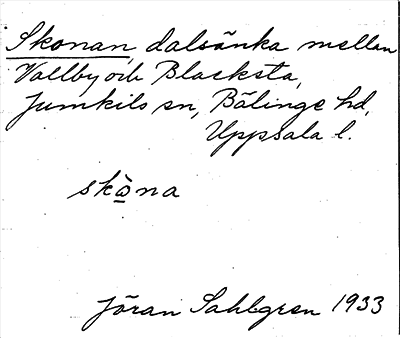 Skonan, dalsänka mellan
Vallby och Blacksta,
Jumkils sn, Bälinge hd,
Uppsala l.
skò̲na
Jöran Sahlgren 1933